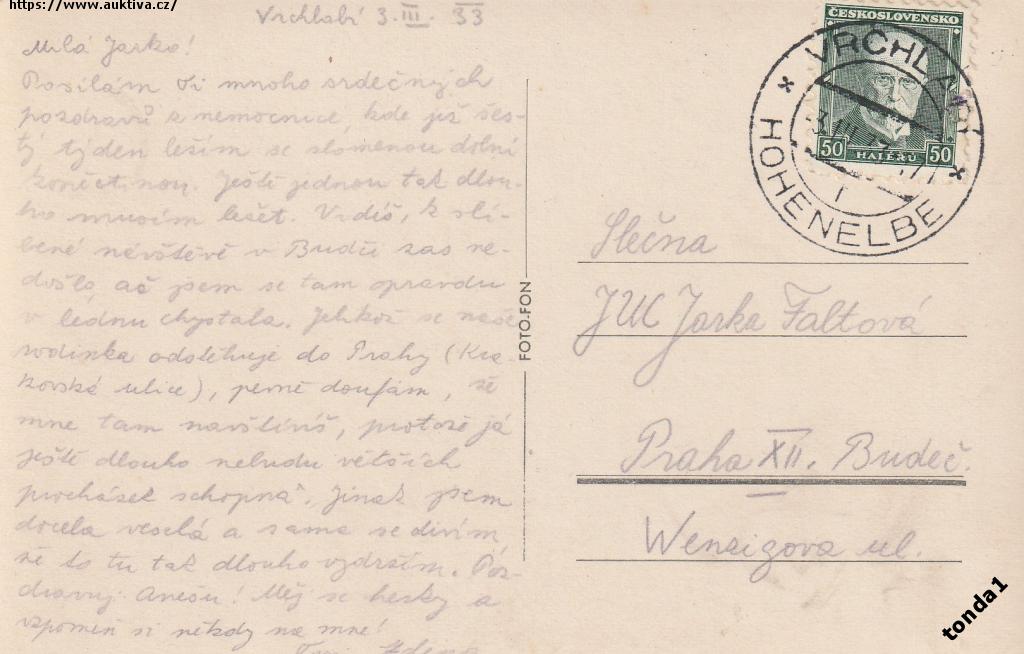 https://www.auktiva.cz/
Vrchlabí 3. III. 33
Milá Jarko!
Posílám Ti mnoho srdečných
pozdravů z nemocnice, kde již šes-
tý týden ležím se zlomenou dolní
končetinou. Ještě jednou tak dlou-
ho musím ležet. Vidíš, k slí-
bené návštěvě v Budči zas ne-
došlo, ač jsem se tam opravdu
v lednu chystala. Jelikož se naše
rodinka odstěhuje do Prahy (Kra-
kovská ulice), pevně doufám, že
mne tam navštívíš, protože já
ještě dlouho nebudu větších
procházek schopna. Jinak jsem
docela veselá a sama se divím,
že to tu tak dlouho vydržím. Poz-
dravuj Anču! Měj se hezky a
vzpomeň si někdy na mne!
Tvá Zdena
FOTO-FON
ČESKOSLOVENSKO
50 HALÉŘŮ 50
VRCHLABÍ
HOHENELBE
Slečna
JUC Jarka Faltová
Praha XII. Budeč.
Wenzigova ul.
tonda1